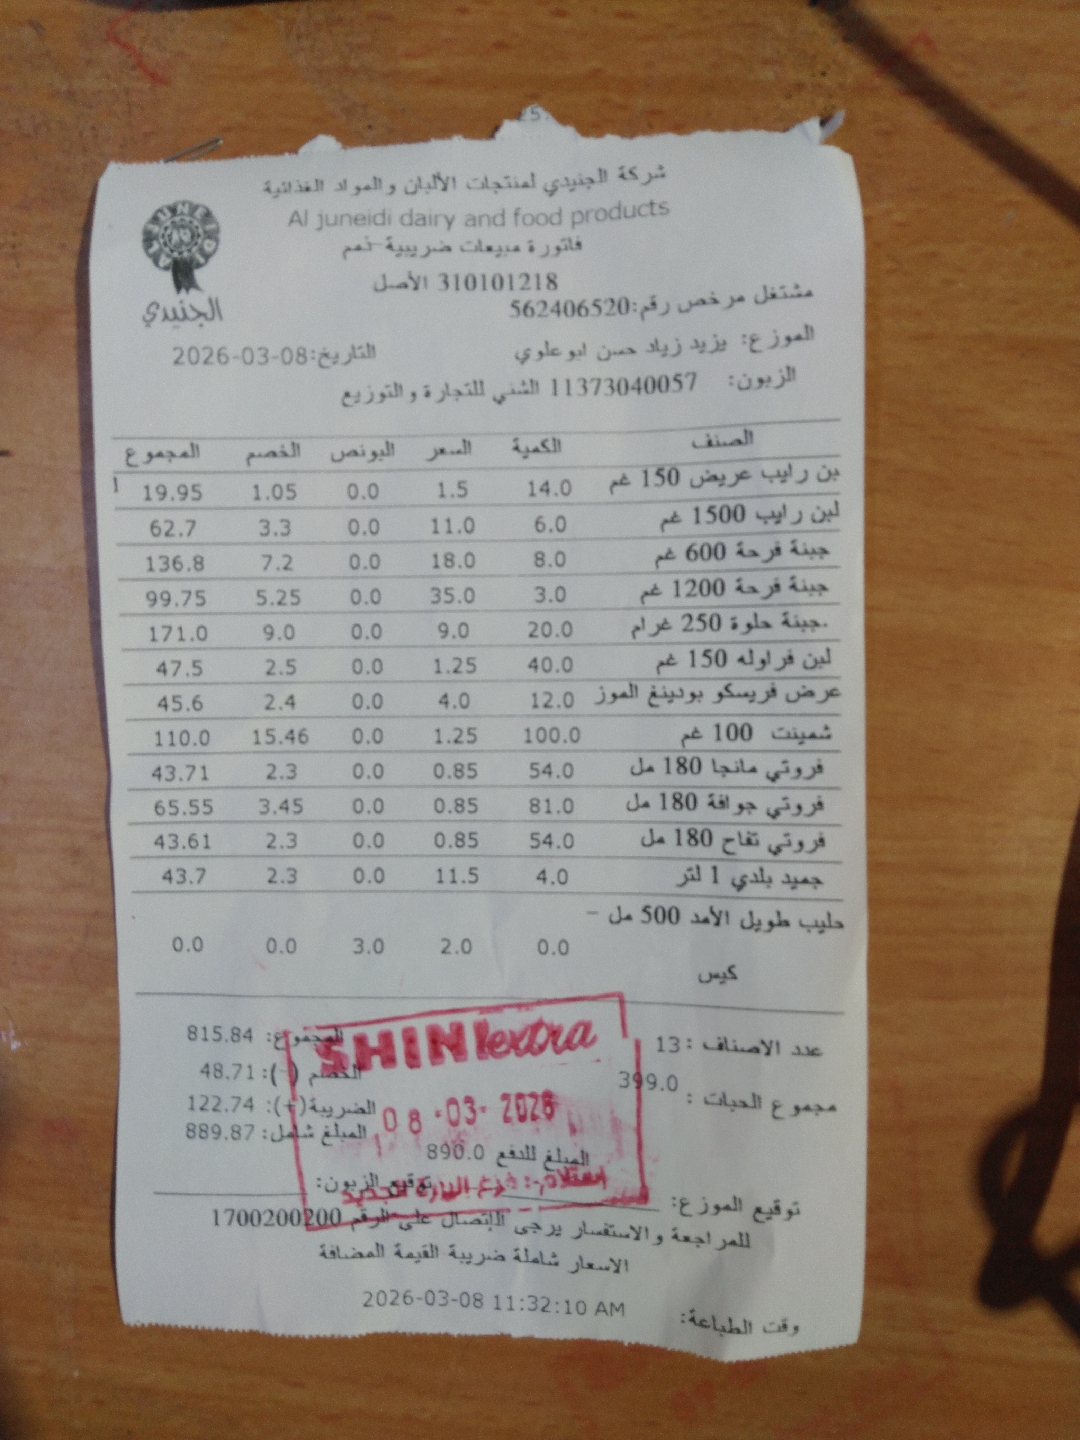 شركة الجنيدي لمنتجات الألبان والمواد الغذائية
Al juneidi dairy and food products
فاتورة مبيعات ضريبية-ذمم
310101218 الأصل
الجنيدي
مشتغل مرخص رقم:562406520
الموزع: يزيد زياد حسن ابو علوي التاريخ:2026-03-08
الزبون: 11373040057 الشني للتجارة والتوزيع
الصنف الكمية السعر البونص الخصم المجموع
بن رايب عريض 150 غم 14.0 1.5 0.0 1.05 19.95
لبن رايب 1500 غم 6.0 11.0 0.0 3.3 62.7
جبنة فرحة 600 غم 8.0 18.0 0.0 7.2 136.8
جبنة فرحة 1200 غم 3.0 35.0 0.0 5.25 99.75
جبنة حلوة 250 غرام. 20.0 9.0 0.0 9.0 171.0
لبن فراوله 150 غم 40.0 1.25 0.0 2.5 47.5
عرض فريسكو بودينغ الموز 12.0 4.0 0.0 2.4 45.6
شمينت 100 غم 100.0 1.25 0.0 15.46 110.0
فروتي مانجا 180 مل 54.0 0.85 0.0 2.3 43.71
فروتي جوافة 180 مل 81.0 0.85 0.0 3.45 65.55
فروتي تفاح 180 مل 54.0 0.85 0.0 2.3 43.61
جميد بلدي 1 لتر 4.0 11.5 0.0 2.3 43.7
حليب طويل الأمد 500 مل -
0.0 2.0 3.0 0.0 0.0
كيس
عدد الاصناف : 13 المجموع: 815.84
الخصم (-): 48.71
مجموع الحبات : 399.0 الضريبة(+): 122.74
المبلغ شامل: 889.87
المبلغ للدفع 890.0
SHINI extra
08-03-2026
توقيع الموزع: توقيع الزبون:
للمراجعة والاستفسار يرجى الإتصال على الرقم 1700200200
الاسعار شاملة ضريبة القيمة المضافة
وقت الطباعة: 2026-03-08 11:32:10 AM